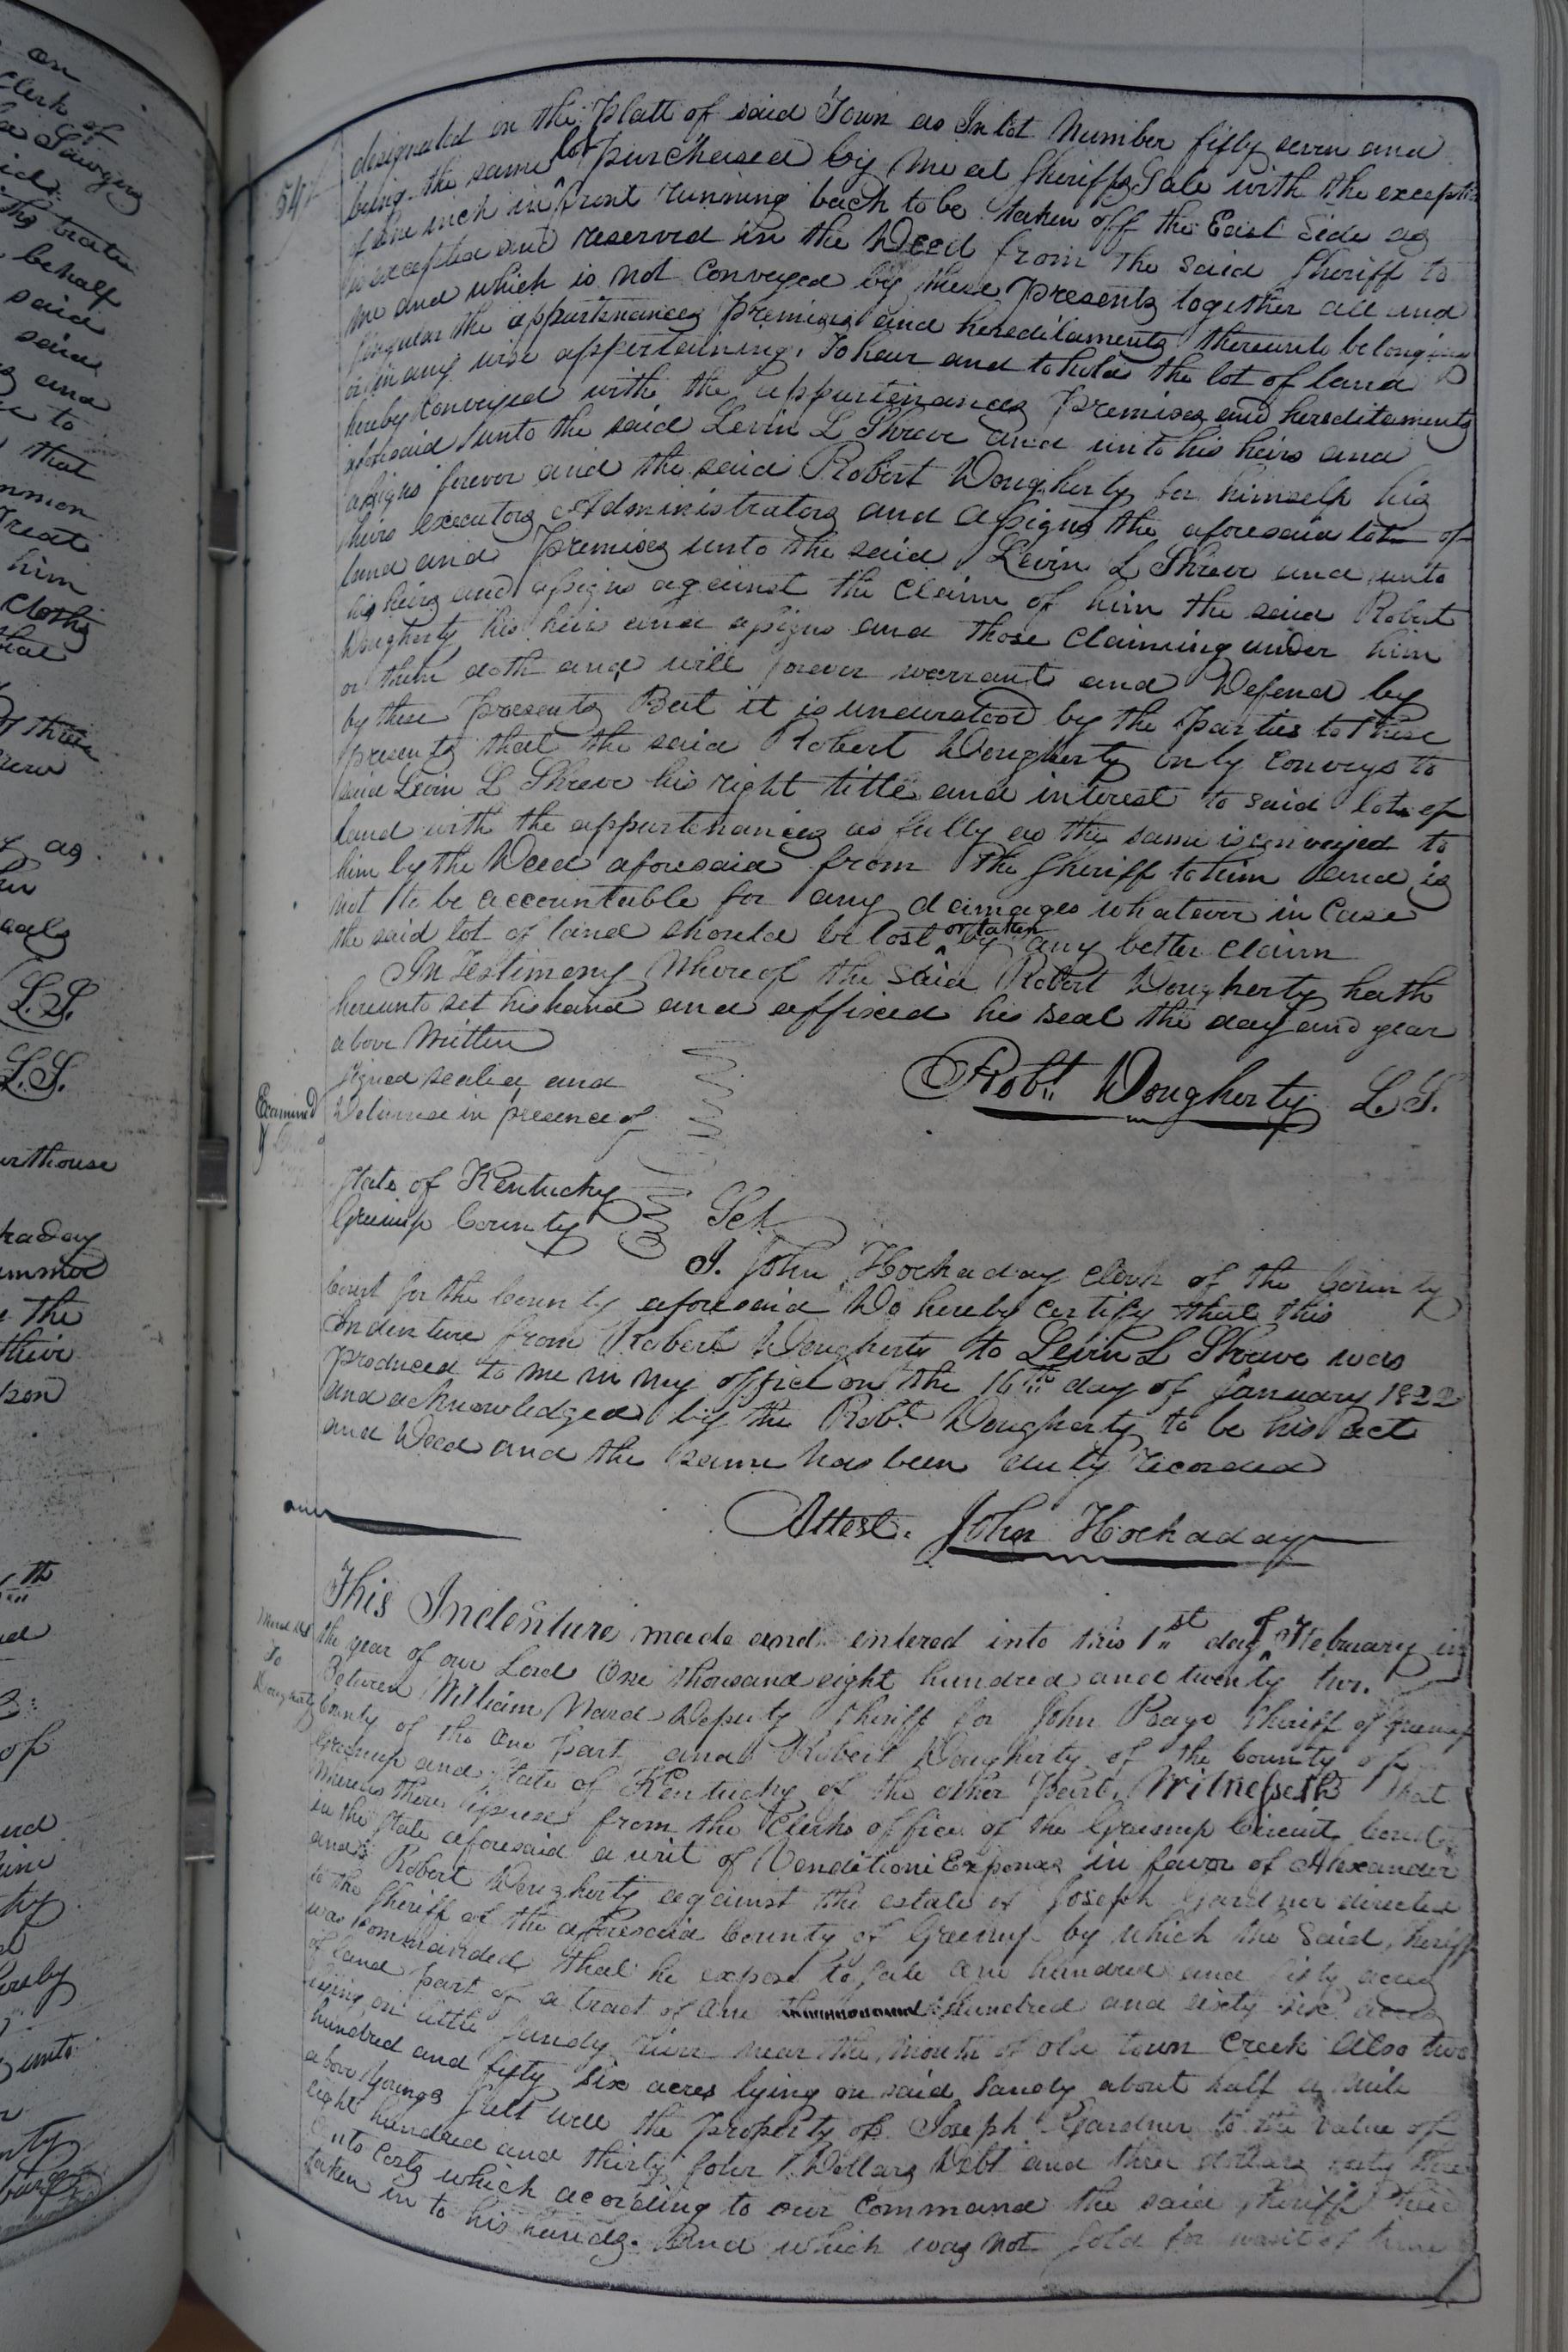 54
designated on the Platt of said Town as Inlot Number fifty seven and
being the same lot purchased by me at Sheriffs Sale with the exception
of one inch in front running back to be taken off the East Side as
is excepted and reserved in the Deed from the said Sheriff to
me and which is not Conveyed by these presents together all and
singular the appurtenances premises and hereditaments thereunto belonging
or in any wise appertaining. To have and to hold the lot of land
hereby Conveyed with the appurtenances premises and hereditaments
aforesaid unto the said Levin L Shreve and unto his heirs and
assigns forever and the said Robert Dougherty for himself his
heirs executors Administrators and assigns the aforesaid lot of
land and premises unto the said Levin L Shreve and unto
his heirs and assigns against the claim of him the said Robert
Dougherty his heirs and assigns and those claiming under him
or them doth and will forever warrant and Defend by
by these presents But it is understood by the parties to these
presents that the said Robert Dougherty only conveys to
said Levin L Shreve his right title and interest to said lot of
land with the appurtenances as fully as the same is conveyed to
him by the Deed aforesaid from the Sheriff to him and is
not to be accountable for any damages whatever in Case
the said lot of land should be lost or taken by any better claim
In Testimony Whereof the said Robert Dougherty hath
hereunto set his hand and affixed his seal the day and year
above Written
Signed sealed and
Delivered in presence of
Robt. Dougherty L.S.
Examined
State of Kentucky
Greenup County Sct.
I. John Hockaday clerk of the County
Court for the County aforesaid Do hereby certify that this
Indenture from Robert Dougherty to Levin L Shreve was
produced to me in my office on the 16th day of January 1822
and acknowledged by the Robt. Dougherty to be his act
and Deed and the same has been duly recorded
Attest. John Hockaday
This Indenture made and entered into this 1st day of February in
the year of our Lord One thousand eight hundred and twenty two.
To
Dougherty
Between William Ward Deputy Sheriff for John Page Sheriff of Greenup
County of the one part and Robert Dougherty of the County of
Greenup and State of Kentucky of the other part. Witnesseth That
Whereas there issued from the Clerks office of the Greenup Circuit Court
in the State aforesaid a writ of Venditioni Exponas in favor of Alexander
and Robert Dougherty against the estate of Joseph Gardner directed
to the Sheriff of the aforesaid County of Greenup by which the Said Sheriff
was Commanded that he expose to sale one hundred and sixty acres
of land part of a tract of one hundred and sixty six acres
lying on little Sandy river near the mouth of old town Creek Also two
hundred and fifty six acres lying on said Sandy about half a mile
above Youngs Salt well the property of Joseph Gardner to the value of
eight hundred and thirty four Dollars Debt and three dollars sixty three
cents Costs which according to our Command the said Sheriff had
taken in to his hands. And which was not sold for want of time